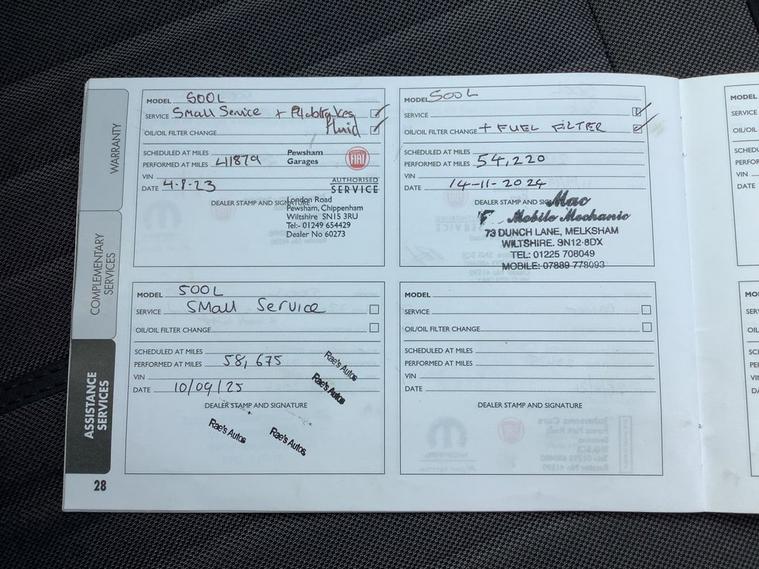 WARRANTY
COMPLEMENTARY
SERVICES
ASSISTANCE
SERVICES
28
MODEL 500L
SERVICE Small Service +
fluid
OIL/OIL FILTER CHANGE
SCHEDULED AT MILES
PERFORMED AT MILES 41879
VIN
DATE 4-8-23
DEALER STAMP AND SIGNATURE
Pewsham
Garages
FIAT
AUTHORISED
SERVICE
London Road
Pewsham, Chippenham
Wiltshire SN15 3RU
Tel:- 01249 654429
Dealer No 60273
MODEL 500L
SERVICE
OIL/OIL FILTER CHANGE + FUEL FILTER
SCHEDULED AT MILES
PERFORMED AT MILES 54,220
VIN
DATE 14-11-2024
DEALER STAMP AND SIGNATURE
Mac
Mobile Mechanic
73 DUNCH LANE, MELKSHAM
WILTSHIRE. SN12 8DX
TEL: 01225 708049
MOBILE: 07889 778093
MODEL 500L
SERVICE Small Service
OIL/OIL FILTER CHANGE
SCHEDULED AT MILES
PERFORMED AT MILES 58,675
VIN
DATE 10/09/25
DEALER STAMP AND SIGNATURE
Rae's Autos
Rae's Autos
Rae's Autos
Rae's Autos
MODEL
SERVICE
OIL/OIL FILTER CHANGE
SCHEDULED AT MILES
PERFORMED AT MILES
VIN
DATE
DEALER STAMP AND SIGNATURE
MODEL
SERVICE
VIN
DATE